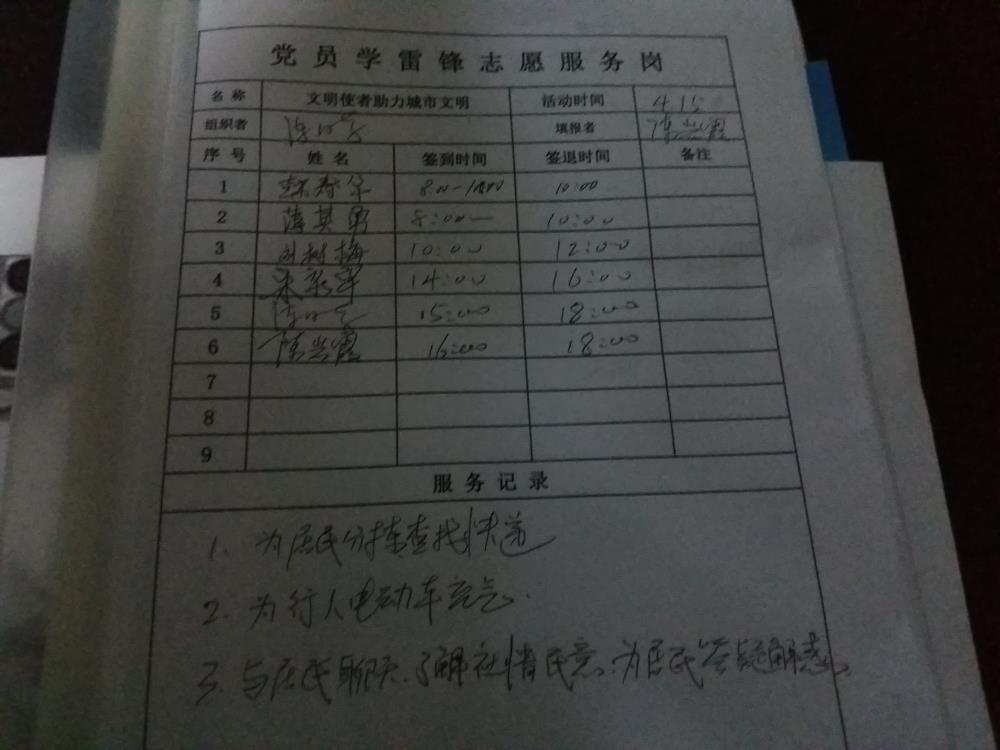 党员学雷锋志愿服务岗
名称 文明使者助力城市文明 活动时间 4.15
组织者 填报者 陈兴霞
序号 姓名 签到时间 签退时间 备注
1 8:00-10:00 10:00
2 薄其勇 8:00— 10:00
3 刘树梅 10:00 12:00
4 14:00 16:00
5 15:00 18:00
6 陈兴霞 16:00 18:00
7
8
9
服务记录
1. 为居民分拣查找快递
2. 为行人电动车充气.
3. 与居民聊天.了解社情民意.为居民答疑解惑.